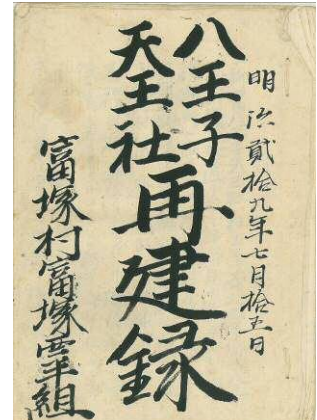 明治貳拾九年七月拾五日
八王子
天王社
再建録
富塚村富塚組